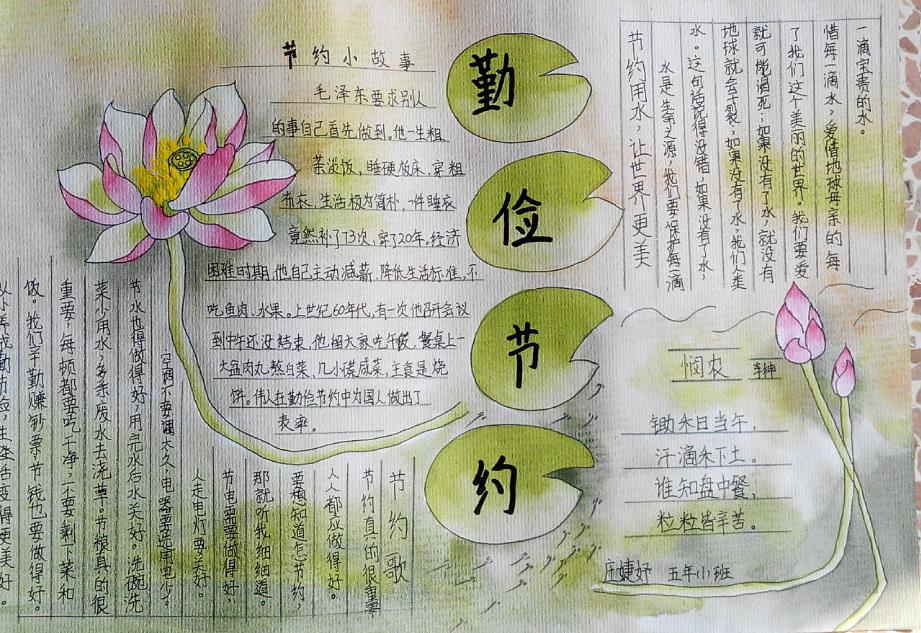 勤
俭
节
约
节约小故事
毛泽东要求别人
的事自己首先做到。他一生粗
茶淡饭，睡硬板床，穿粗
布衣，生活极为简朴，一件睡衣
竟然补了73次，穿了20年。经济
困难时期，他自己主动减薪、降低生活标准，不
吃鱼肉、水果。上世纪60年代，有一次他召开会议
到中午还没结束，他留大家吃午饭，餐桌上一
大盆肉丸熬白菜、几小碟咸菜，主食是烧
饼。伟人在勤俭节约中为国人做出了
表率。
节约用水，让世界更美
水是生命之源，我们要保护每一滴
水。这句话说得没错，如果没有了水，
地球就会干裂；如果没有了水，我们人类
就可能渴死；如果没有了水，就没有
了我们这个美丽的世界。我们要爱
惜每一滴水，爱惜地球母亲的每
一滴宝贵的水。
悯农
李绅
锄禾日当午，
汗滴禾下土。
谁知盘中餐，
粒粒皆辛苦。
五年小班
节约歌
节约真的很重要
人人都应做得好。
要想知道怎节约，
那就听我细细道。
节电需要做得好，
人走电灯要关好。
节水也得做得好，用完水后水关好。洗碗洗
菜少用水，多余废水去浇草。节粮真的很
重要，每顿都要吃干净，不要剩下菜和
饭。我们辛勤赚钞票，节钱也要做得好。